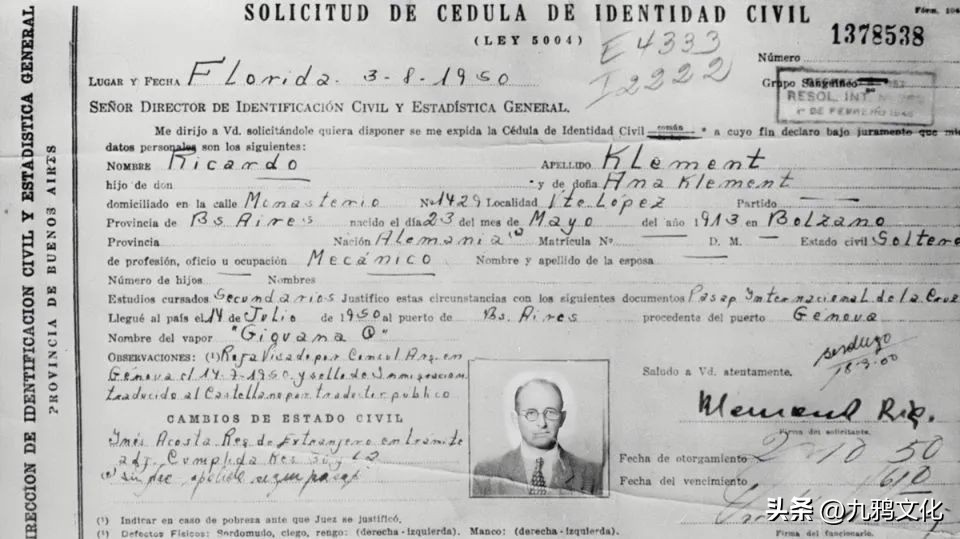 SOLICITUD DE CEDULA DE IDENTIDAD CIVIL
(LEY 5004)
E 4333
I 2222
1378538
Número
Grupo Sanguíneo
RESOL. INT. Nº
DE FEBRERO 1946
LUGAR Y FECHA Florida - 3-8-1950
SEÑOR DIRECTOR DE IDENTIFICACIÓN CIVIL Y ESTADÍSTICA GENERAL.
Me dirijo a Vd. solicitándole quiera disponer se me expida la Cédula de Identidad Civil común * a cuyo fin declaro bajo juramento que mis
datos personales son los siguientes:
NOMBRE Ricardo APELLIDO Klement
hijo de don y de doña Ana Klement
domiciliado en la calle Monasterio Nº 1429 Localidad Vte. López Partido
Provincia de Bs Aires nacido el día 23 del mes de Mayo del año 1913 en Bolzano
Provincia Nación Alemania Matrícula Nº. D. M. Estado civil Soltero
de profesión, oficio u ocupación Mecánico Nombre y apellido de la esposa
Número de hijos Nombres
Estudios cursados Secundarios Justifico estas circunstancias con los siguientes documentos Pasap. Internacional de la Cruz
Llegué al país el 14 de Julio de 1950 al puerto de Bs. Aires procedente del puerto Génova
Nombre del vapor "Giovana C"
OBSERVACIONES: (1) Refa Visado por Consul Arg. en
Génova el 14-7-1950 y sello de Inmigracion
traducido al Castellano por traductor publico
Saludo a Vd. atentamente.
CAMBIOS DE ESTADO CIVIL
Inés Acosta Reg. de Extranjero en tramite
Firma del solicitante.
Fecha de otorgamiento 2-10 50
Fecha del vencimiento
(1) Indicar en caso de pobreza ante que Juez se justificó.
(1) Defectos Físicos: Sordomudo, ciego, rengo: (derecha-izquierda). Manco: (derecha-izquierda).
Firma del funcionario.
DIRECCION DE IDENTIFICACION CIVIL Y ESTADISTICA GENERAL
PROVINCIA DE BUENOS AIRES
头条 @九鸦文化